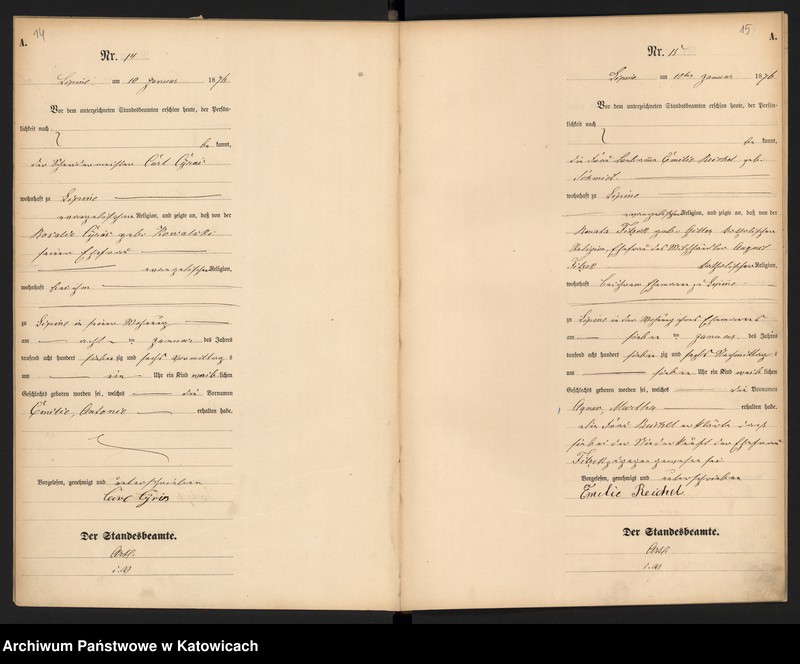 14
A.
Nr. 14
Lipine am 10 Januar 1876
Vor dem unterzeichneten Standesbeamten erschien heute, der Persön-
lichkeit nach
be kannt,
der Carl Cyris
wohnhaft zu Lipine
evangelischer Religion, und zeigte an, daß von der
Rosalie Cyris geb. Kowalski
seiner Ehefrau
evangelischer Religion,
wohnhaft bei ihm
zu Lipine in seiner Wohnung
am acht ten Januar des Jahres
tausend acht hundert sieben zig und sechs Vormittag s
um ein Uhr ein Kind weib lichen
Geschlechts geboren worden sei, welches die Vornamen
Emilie, Antonie erhalten habe.
Vorgelesen, genehmigt und unterschrieben
Carl Cyris
Der Standesbeamte.
15
A.
Nr. 15
Lipine am 10ten Januar 1876
Vor dem unterzeichneten Standesbeamten erschien heute, der Persön-
lichkeit nach
be kannt,
die Frau Hebamme Emilie Reichel geb.
Schmidt
wohnhaft zu Lipine
evangelischer Religion, und zeigte an, daß von der
Renata Fitzek geb. katholischer
Religion, Ehefrau des August
Fitzek katholischer Religion,
wohnhaft bei ihrem Ehemann zu Lipine
zu Lipine in der Wohnung ihres Ehemannes
am sieben ten Januar des Jahres
tausend acht hundert sieben zig und sechs Nachmittag s
um sieben Uhr ein Kind weib lichen
Geschlechts geboren worden sei, welches die Vornamen
Agnes, Martha erhalten habe.
Die Frau Reichel erklärte, daß
sie bei der Niederkunft der Ehefrau
Fitzek zugegen gewesen sei
Vorgelesen, genehmigt und unterschrieben
Emilie Reichel
Der Standesbeamte.
Archiwum Państwowe w Katowicach